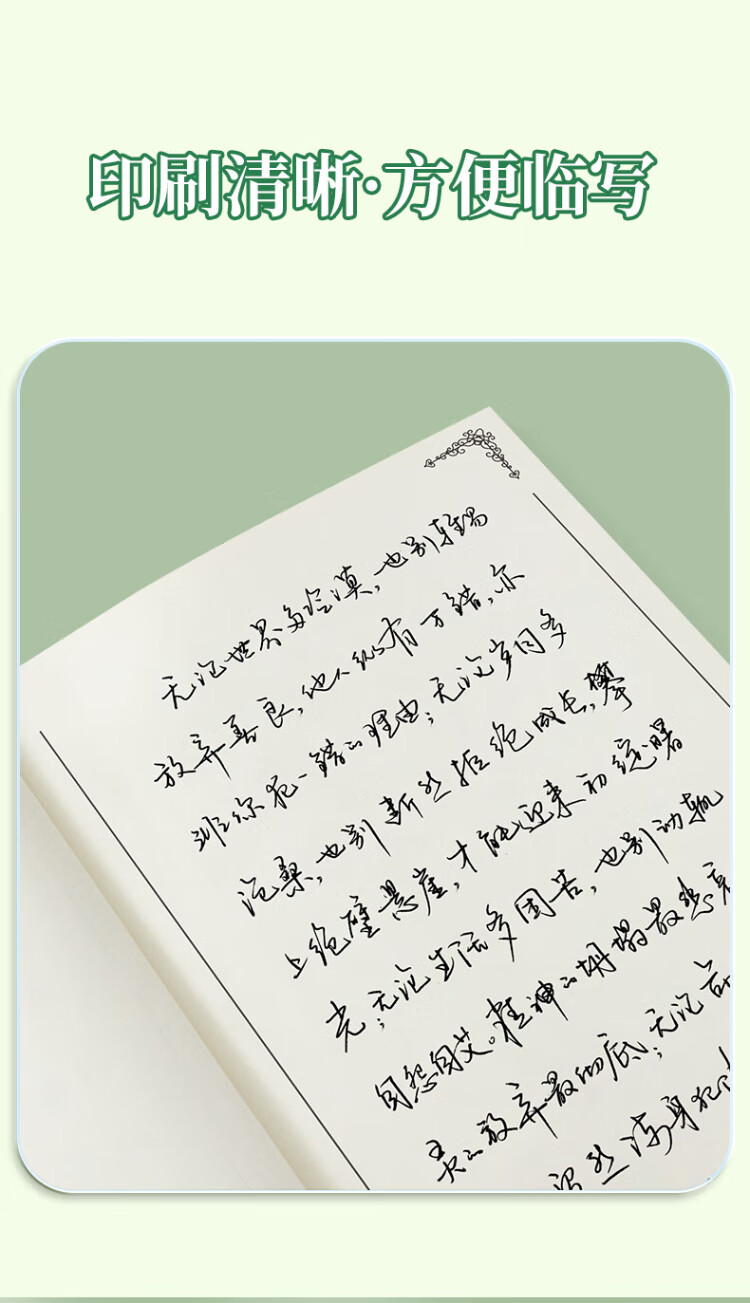 印刷清晰·方便临写
无论世界多冷漠，也别轻易
放弃善良，他人纵有万错，亦
非你犯一错的理由；无论岁月多
沧桑，也别断然拒绝成长，攀
上绝壁悬崖，才能迎来初绽曙
光；无论生活多困苦，也别动辄
自怨自艾。精神的坍塌最悲哀
美的放弃最彻底；无论
浑身